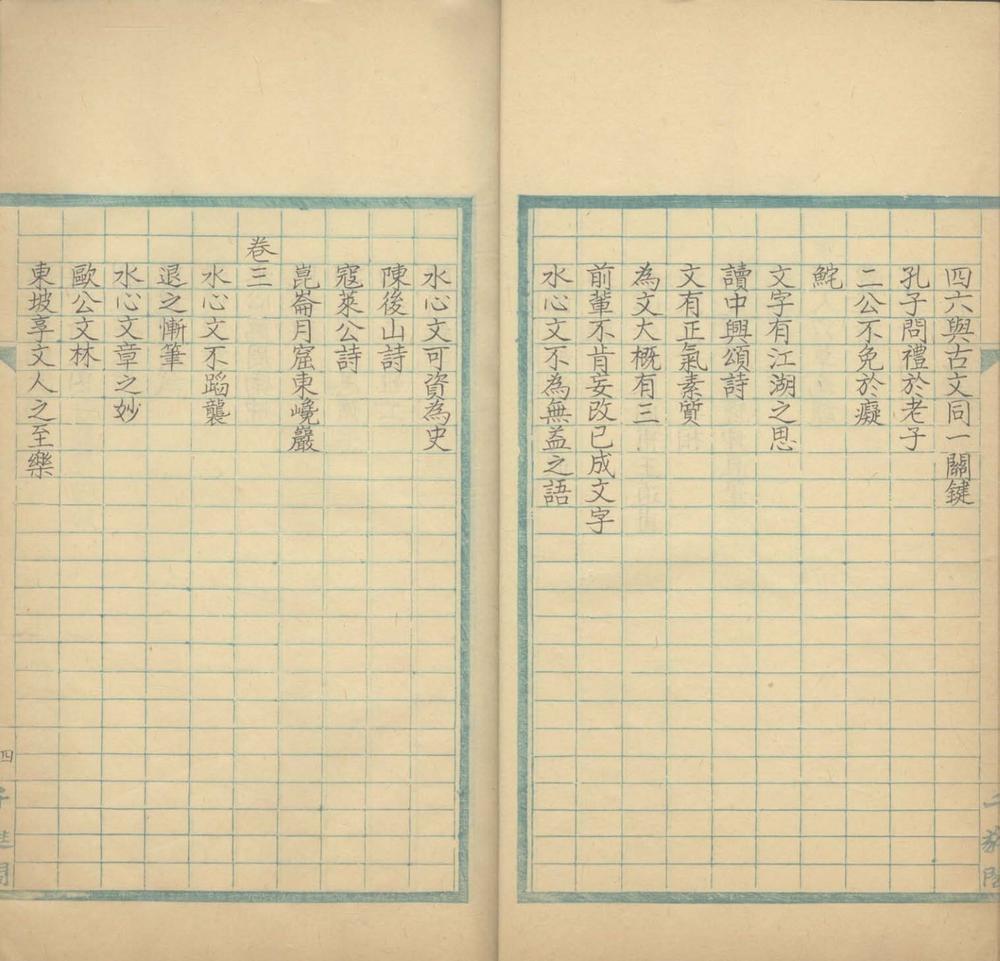 四六與古文同一關鍵
孔子問禮於老子
二公不免於癡
鮱
文字有江湖之思
讀中興頌詩
文有正氣素質
為文大概有三
前輩不肯妄改已成文字
水心文不為無益之語
水心文可資為史
陳後山詩
寇萊公詩
崑崙月窟東嵬巖
卷三
水心文不蹈襲
退之慚筆
水心文章之妙
歐公文林
東坡享文人之至樂
四